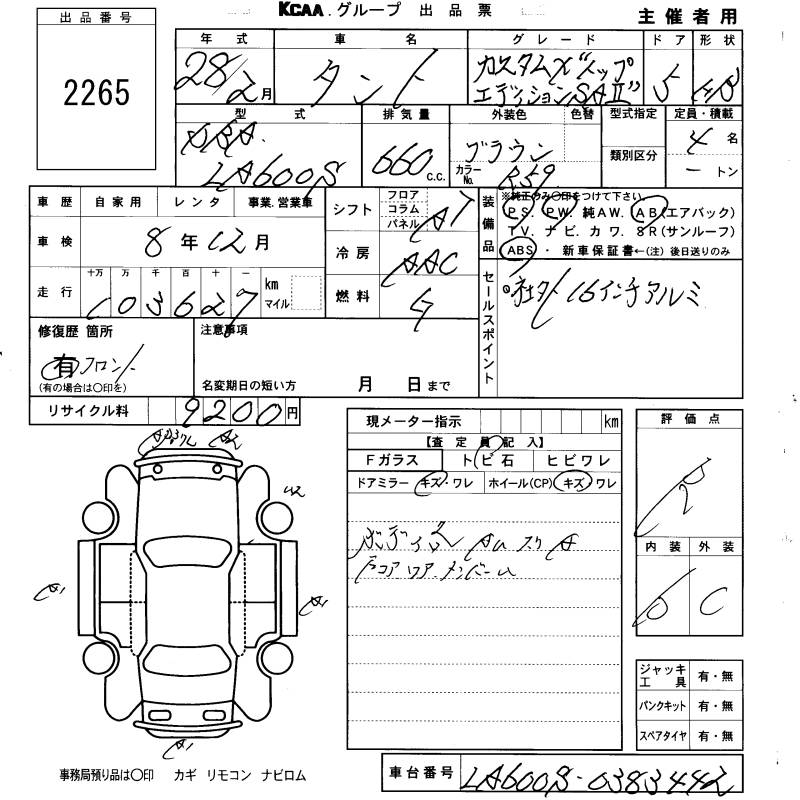 KCAA.グループ 出品票
主催者用
出品番号
2265
年式 車名 グレード ドア 形状
28/2月 タント カスタムX"トップ 5 HB
エディションSAⅡ"
型式 排気量 外装色 色替 型式指定 定員・積載
DBA- 660 c.c. ブラウン 4名
LA600S カラーNo. R59 類別区分 ートン
車歴 自家用 レンタ 事業.営業車
シフト フロア コラム パネル AT
装備品 ※純正のみ〇印をつけて下さい
PS. PW. 純AW. AB(エアバック)
TV. ナビ. カワ. SR(サンルーフ)
ABS ・ 新車保証書←(注) 後日送りのみ
車検 8年12月
冷房 AAC
走行 十万 万 千 百 十 一
103627 km マイル
燃料 G
セールスポイント
社外16インチアルミ
修復歴 箇所 注意事項
有 フロント
(有の場合は〇印を)
名変期日の短い方 月 日まで
リサイクル料 9200円
現メーター指示 km
【査定員記入】
Fガラス トビ石 ヒビワレ
ドアミラー キズ・ワレ ホイール(CP) キズ・ワレ
A2
U2
A1
A1
A1
評価点
R
内装 外装
D C
ジャッキ工具 有・無
パンクキット 有・無
スペアタイヤ 有・無
事務局預り品は〇印 カギ リモコン ナビロム
車台番号 LA600S-0383442